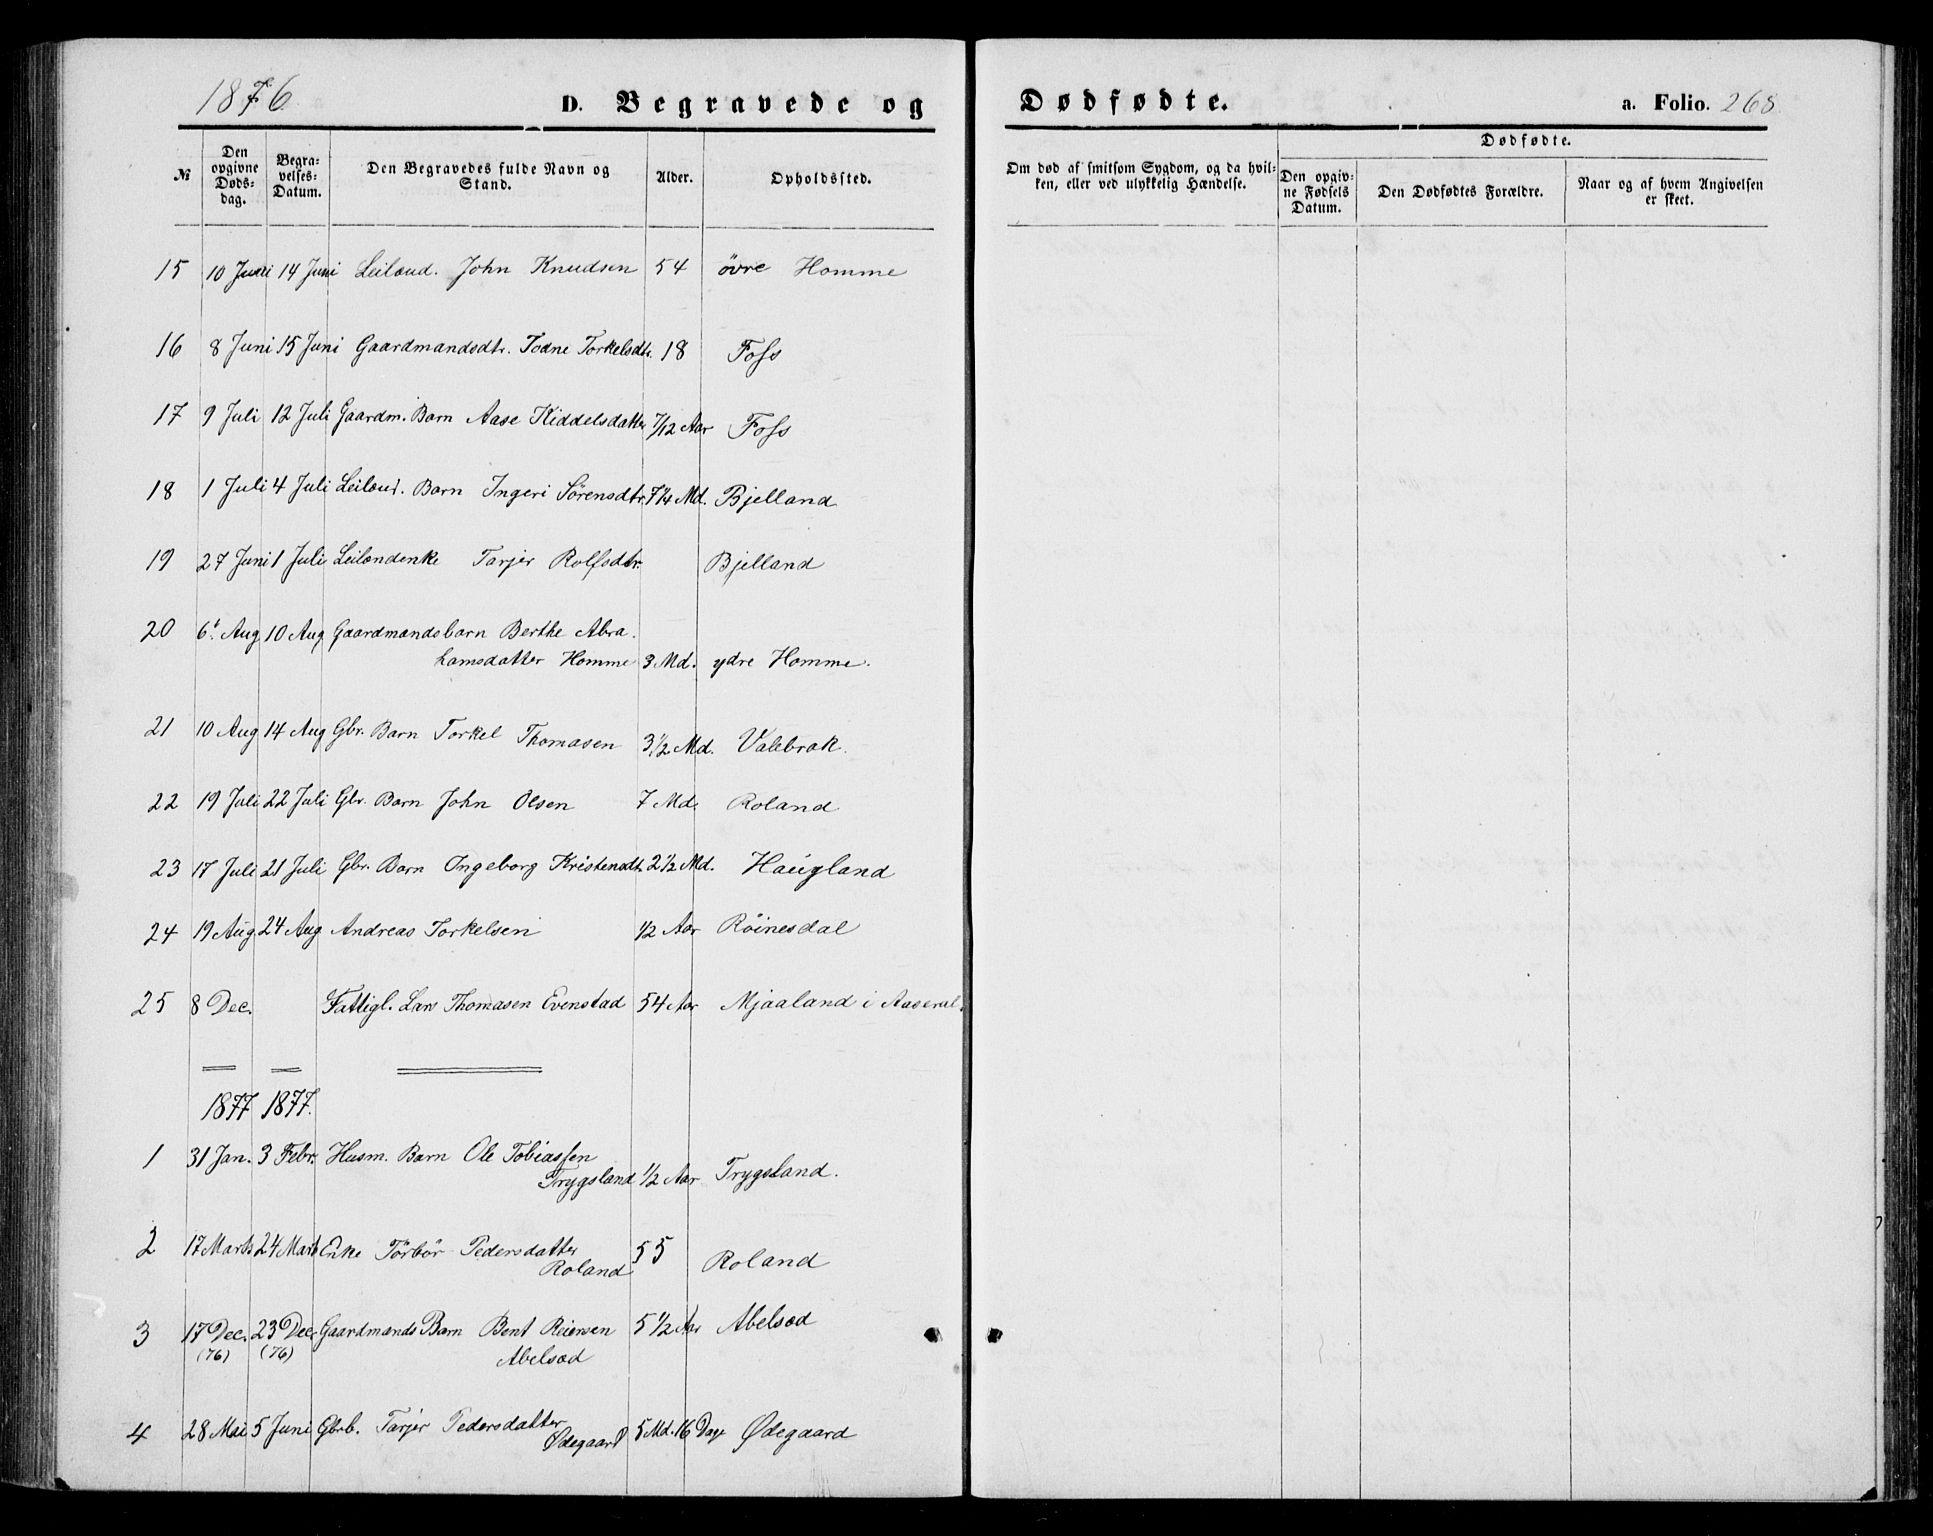 1876
D. Begravede og Dødfødte.
a. Folio. 268.
№
Den opgivne Døds-dag.
Begra-velses-Datum.
Den Begravedes fulde Navn og Stand.
Alder.
Opholdssted.
Om død af smitsom Sygdom, og da hvil-ken, eller ved ulykkelig Hændelse.
Dødfødte.
Den opgiv-ne Fødsels Datum.
Den Dødfødtes Forældre.
Naar og af hvem Angivelsen er skeet.
15 10 Juni 14 Juni Leilænd. John Knudsen 54 övre Homme
16 8 Juni 15 Juni Gaardmandsdtr. Todne Torkelsdtr. 18 Foss
17 9 Juli 12 Juli Gaardm. Barn Aase Kiddelsdatter 7/12 Aar Foss
18 1 Juli 4 Juli Leilænd. Barn Ingeri Sörensdtr. 7 1/4 Md. Bjelland
19 27 Juni 1 Juli Leilændenke Tarjer Rolfsdtr. Bjelland
20 6. Aug 10 Aug Gaardmandsbarn Berthe Abra.
hamsdatter Homme 3 Md. ydre Homme.
21 10 Aug 14 Aug Gbr. Barn Torkel Thomasen 3 1/2 Md. Valebrok.
22 19 Juli 22 Juli Gbr. Barn John Olsen 7 Md. Roland
23 17 Juli 21 Juli Gbr. Barn Ingeborg Kristensdt. 2 1/2 Md. Haugland
24 19 Aug. 24 Aug Andreas Torkelsen 1/2 Aar Röinesdal
25 8 Dec. Fattigl. Lars Thomasen Evenstad 54 Aar Mjaaland i Aaseral.
1877 1877.
1 31 Jan. 3 Febr. Husm. Barn Ole Tobiassen
Trygsland 1/2 Aar Trygsland.
2 17 Marts 24 Marts Enke Törbör Pedersdatter
Roland 55 Roland
3 17 Dec. 23 Dec. Gaardmands Barn Bent Reiersen 5 1/2 Aar Abelsæd
(76) (76) Abelsæd
4 28 Mai 5 Juni Gbrb. Tarjer Pedersdatter
Ødegaard 5 Md. 16 Dage Ødegaard